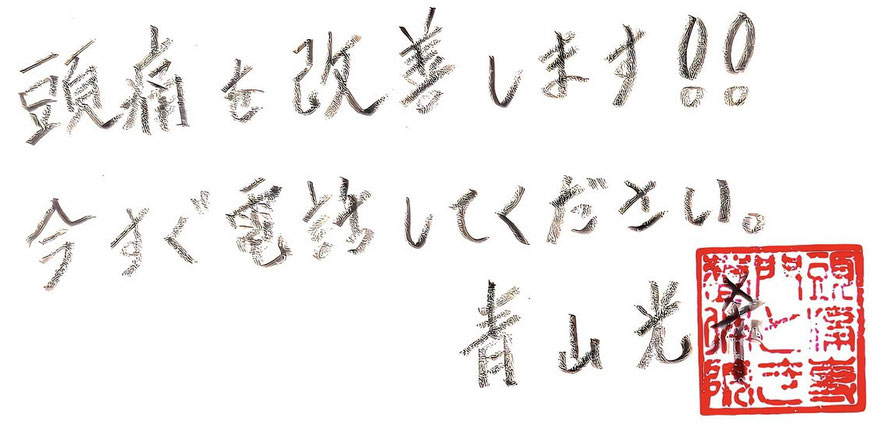 頭痛を改善します!!
今すぐ電話してください。
青山光